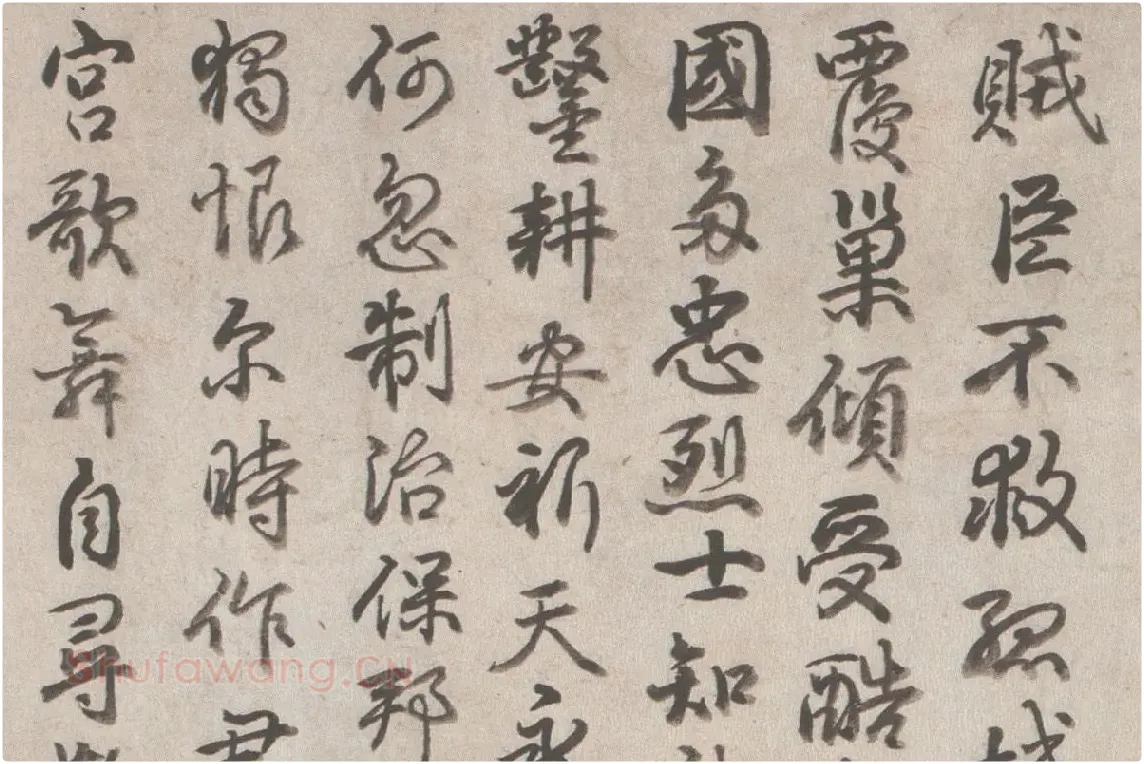 賊臣不救孤城
覆巢傾受酷
國多忠烈士知
鑿耕安祈天永
何忽制治保邦
獨恨尔時作君
宮歌舞自尋
Shufawang.CN